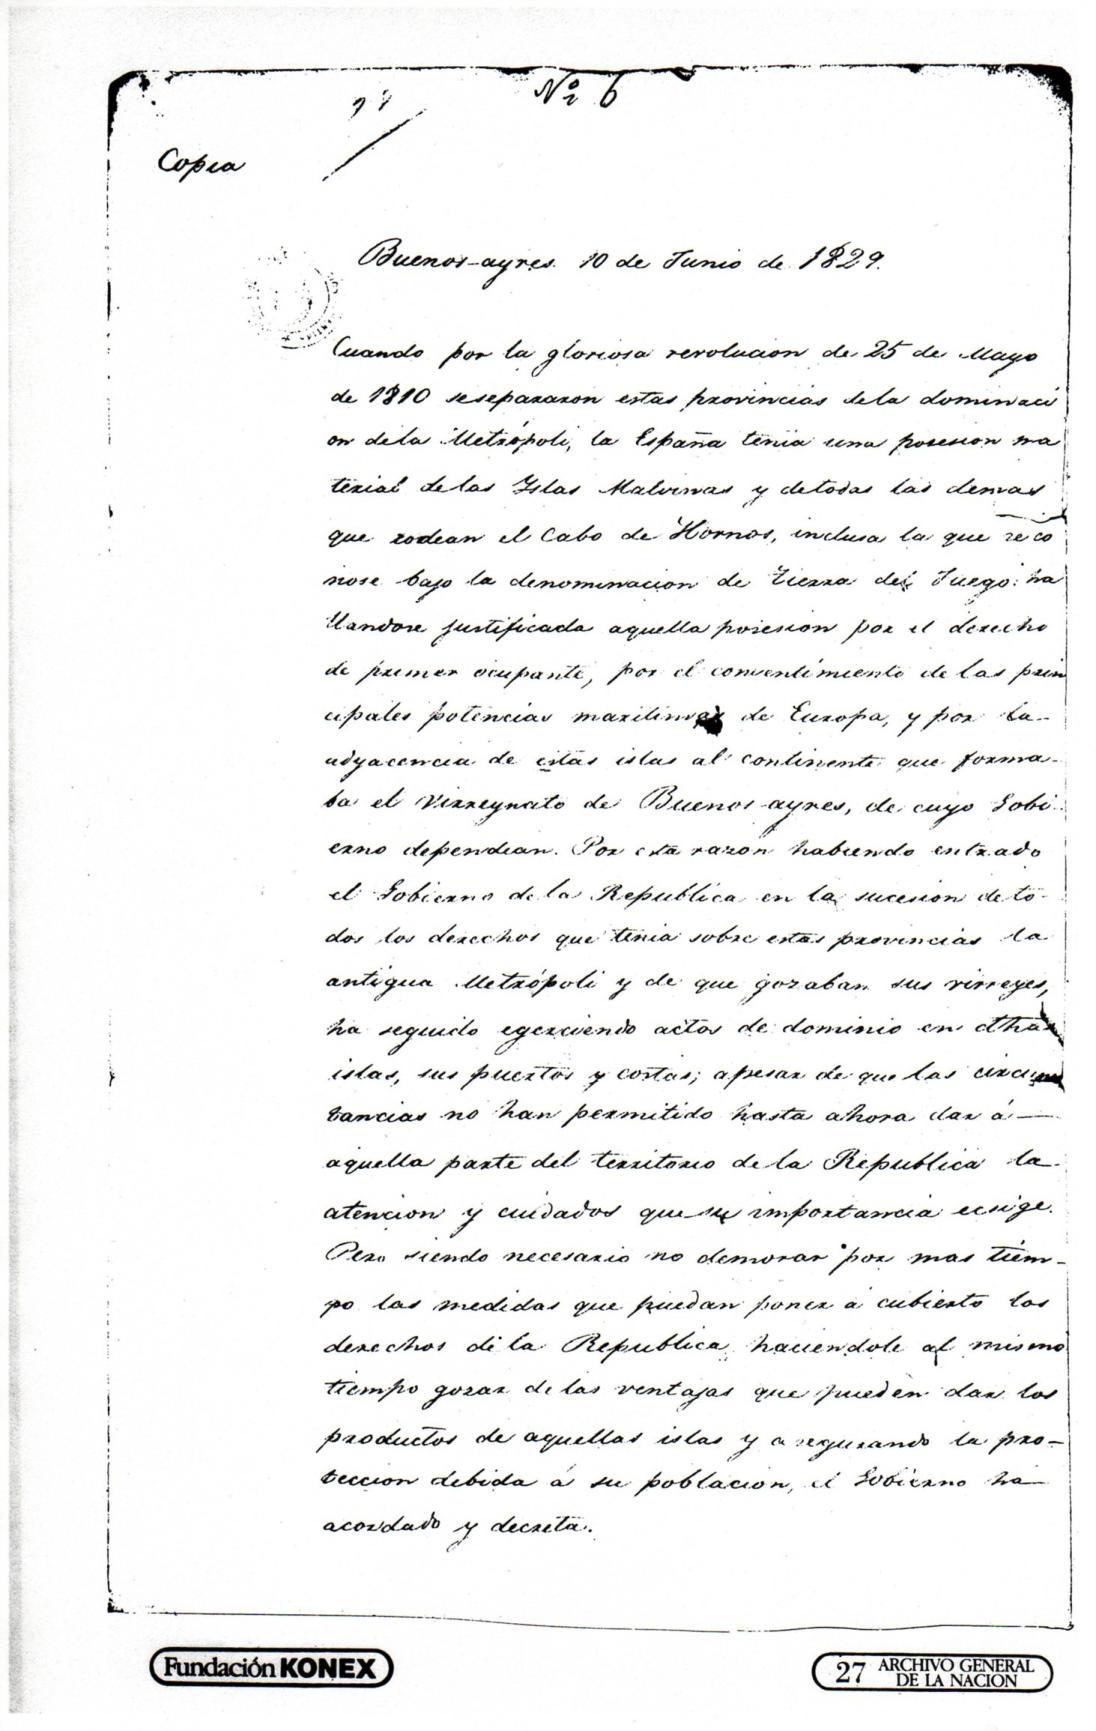 Nº 6
Copia
Buenos-ayres 10 de Junio de 1829.
Cuando por la gloriosa revolucion de 25 de Mayo
de 1810 se separaron estas provincias de la dominaci
on de la Metrópoli, la España tenia una posesion ma
terial de las Yslas Malvinas y de todas las demas
que rodean el Cabo de Hornos, inclusa la que se co
nose bajo la denominacion de Tierra del Fuego: ha
llandose justificada aquella posesion por el derecho
de primer ocupante, por el consentimiento de las prin
cipales potencias maritimas de Europa, y por la-
adyacencia de estas islas al continente que forma-
ba el Virreynato de Buenos-ayres, de cuyo Gobi-
erno dependian. Por esta razon habiendo entrado
el Gobierno de la Republica en la sucesion de to-
dos los derechos que tenia sobre estas provincias la
antigua Metrópoli y de que gozaban sus virreyes,
ha seguido egerciendo actos de dominio en dhas
islas, sus puertos y costas; apesar de que las circuns
tancias no han permitido hasta ahora dar á —
aquella parte del territorio de la Republica la-
atencion y cuidados que su importancia ecsige.
Pero siendo necesario no demorar por mas tiem-
po las medidas que puedan poner á cubierto los
derechos de la Republica, haciendole al mismo
tiempo gozar de las ventajas que pueden dar los
productos de aquellas islas y asegurando la pro-
teccion debida á su poblacion, el Gobierno ha—
acordado y decreta.
Fundación KONEX
27 ARCHIVO GENERAL
DE LA NACION